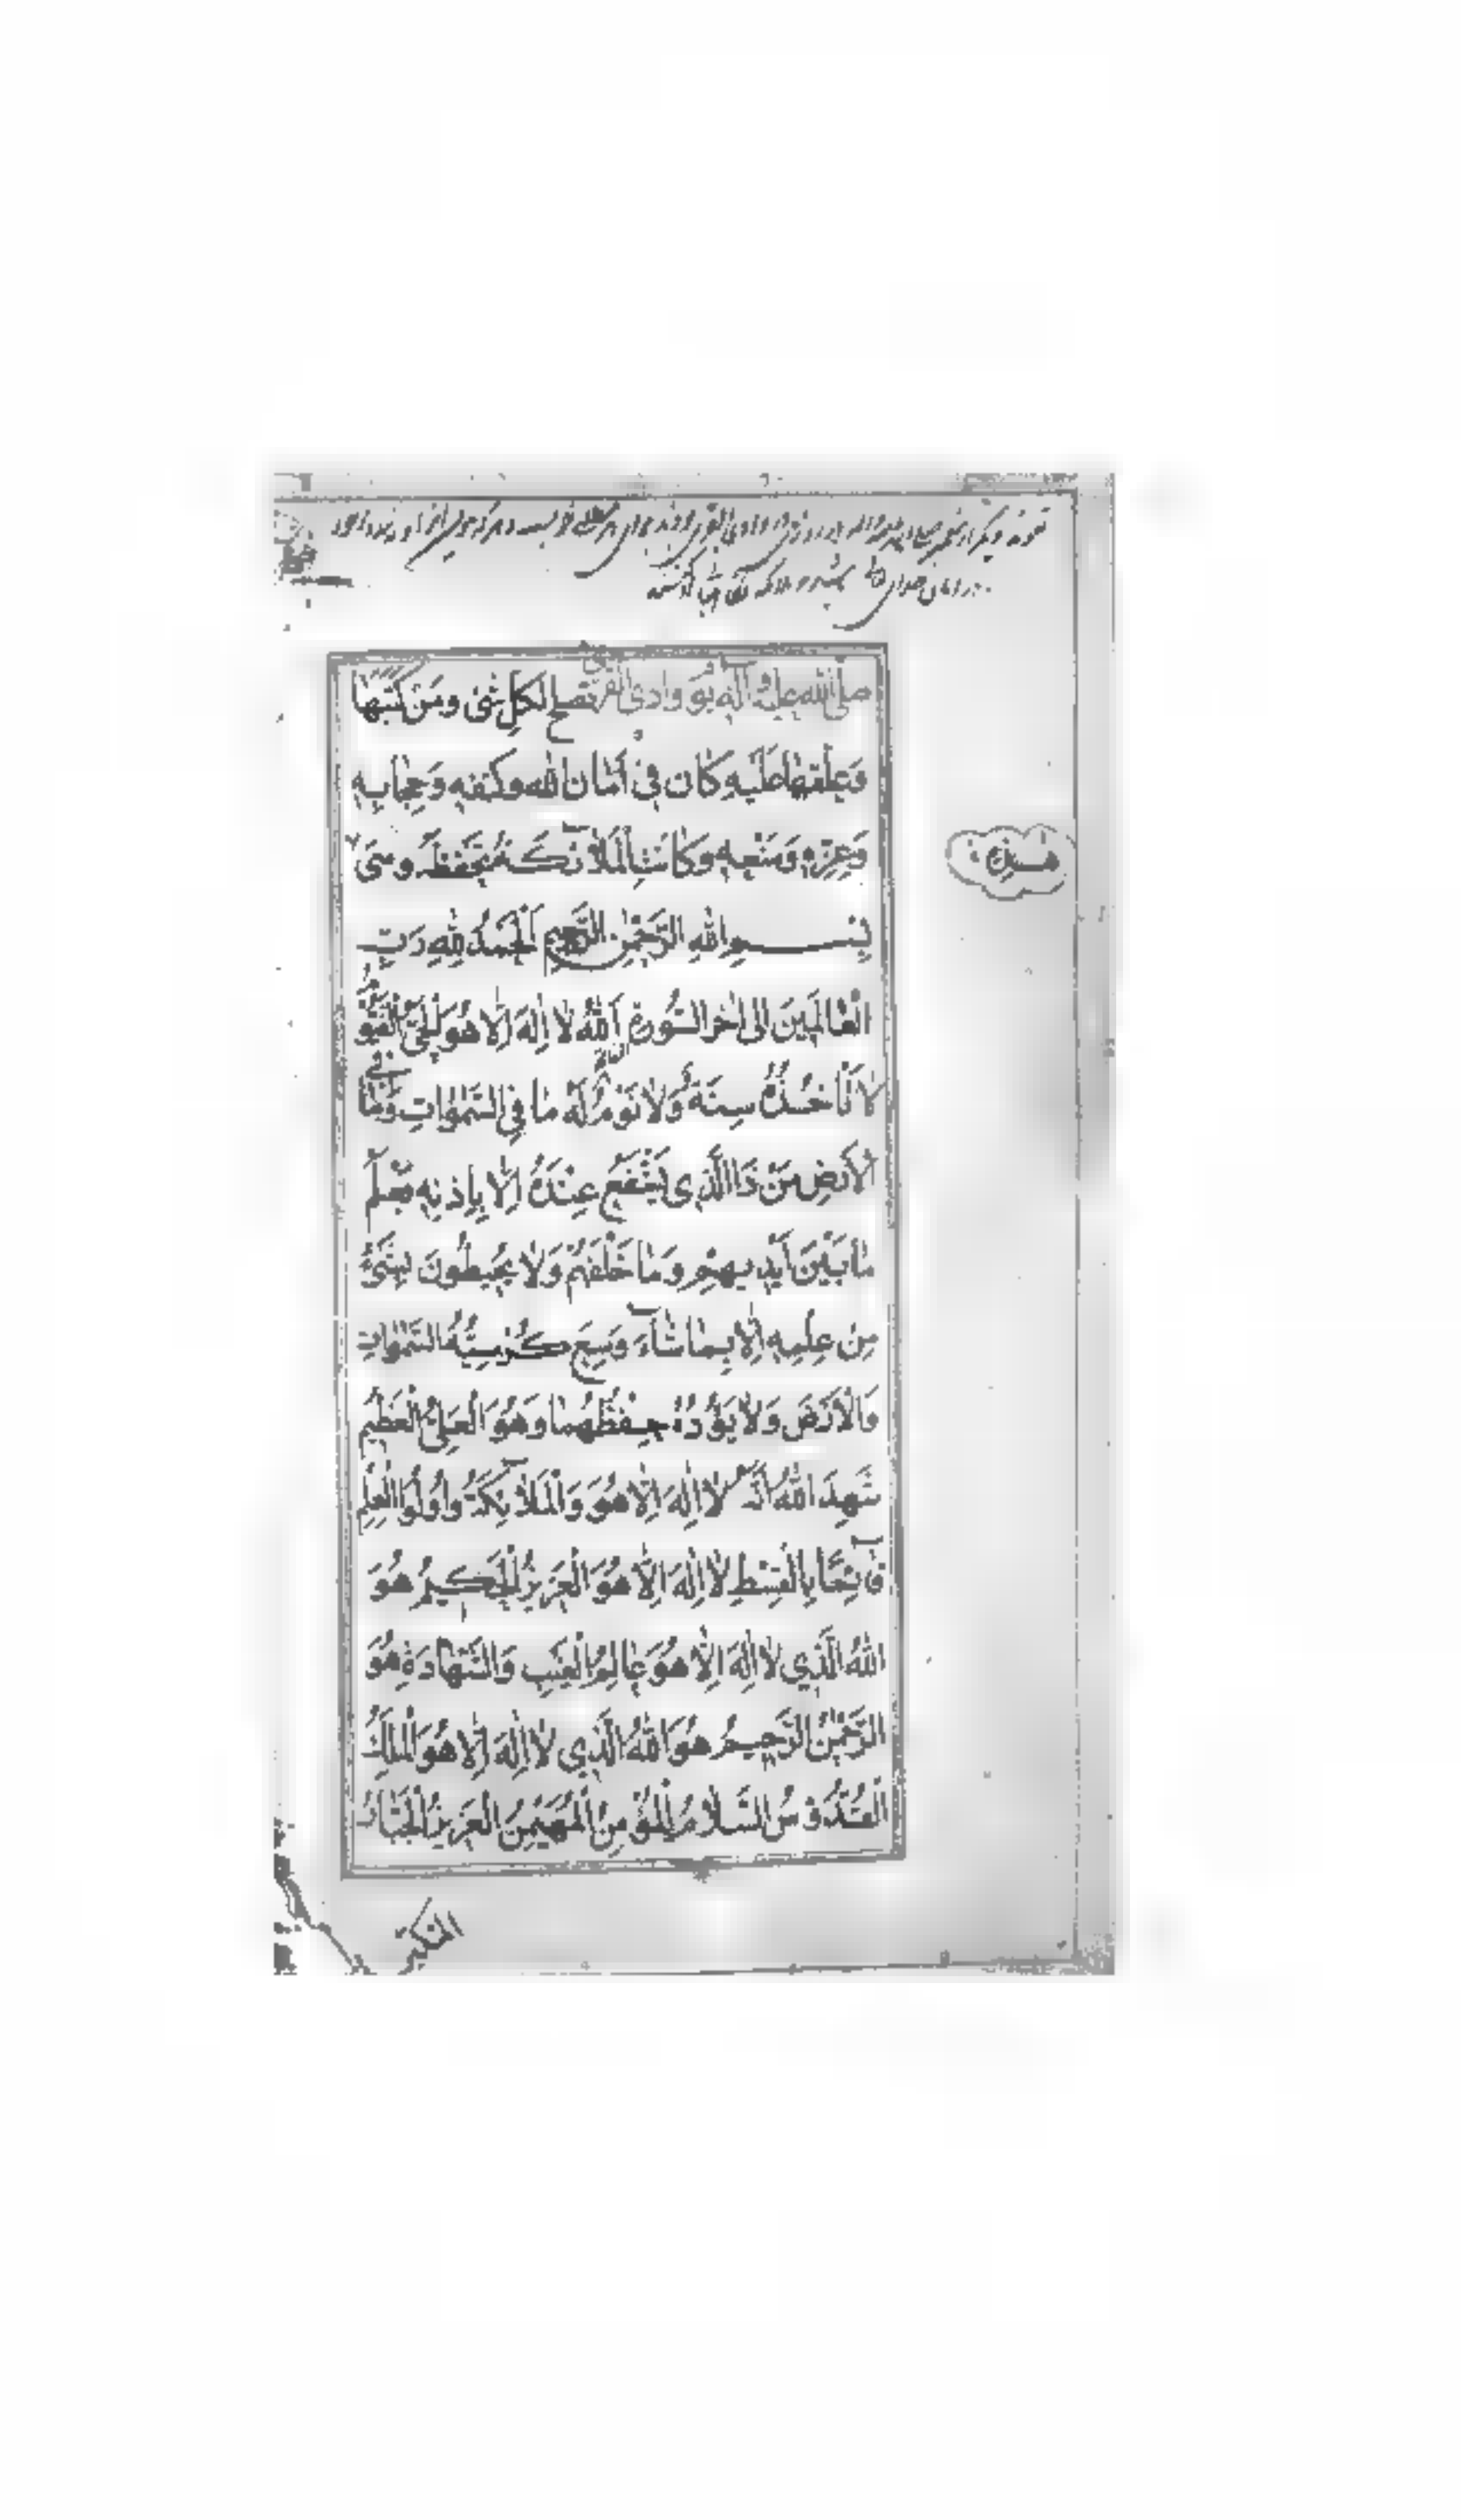 صلى الله عليه وآله بوادى القرى تصلح لكل شئ ومن كتبها
وعلقها عليه كان فى امان الله وكنفه وحجابه
وعزه ومنعه وكانت الملائكة تحفظه وهى
بسم الله الرحمن الرحيم الحمد لله رب
العالمين الى اخر السورة الله لا اله الا هو الحي القيوم
لا تأخذه سنة ولا نوم له ما في السموات وما في
الارض من ذا الذى يشفع عنده الا باذنه يعلم
ما بين ايديهم وما خلفهم ولا يحيطون بشئ
من علمه الا بما شاء وسع كرسيه السموات
والارض ولا يؤده حفظهما وهو العلي العظيم
شهد الله انه لا اله الا هو والملائكة واولوا العلم
قائما بالقسط لا اله الا هو العزيز الحكيم هو
الله الذي لا اله الا هو عالم الغيب والشهادة هو
الرحمن الرحيم هو الله الذي لا اله الا هو الملك
القدوس السلام المؤمن المهيمن العزيز الجبار
المتكبر